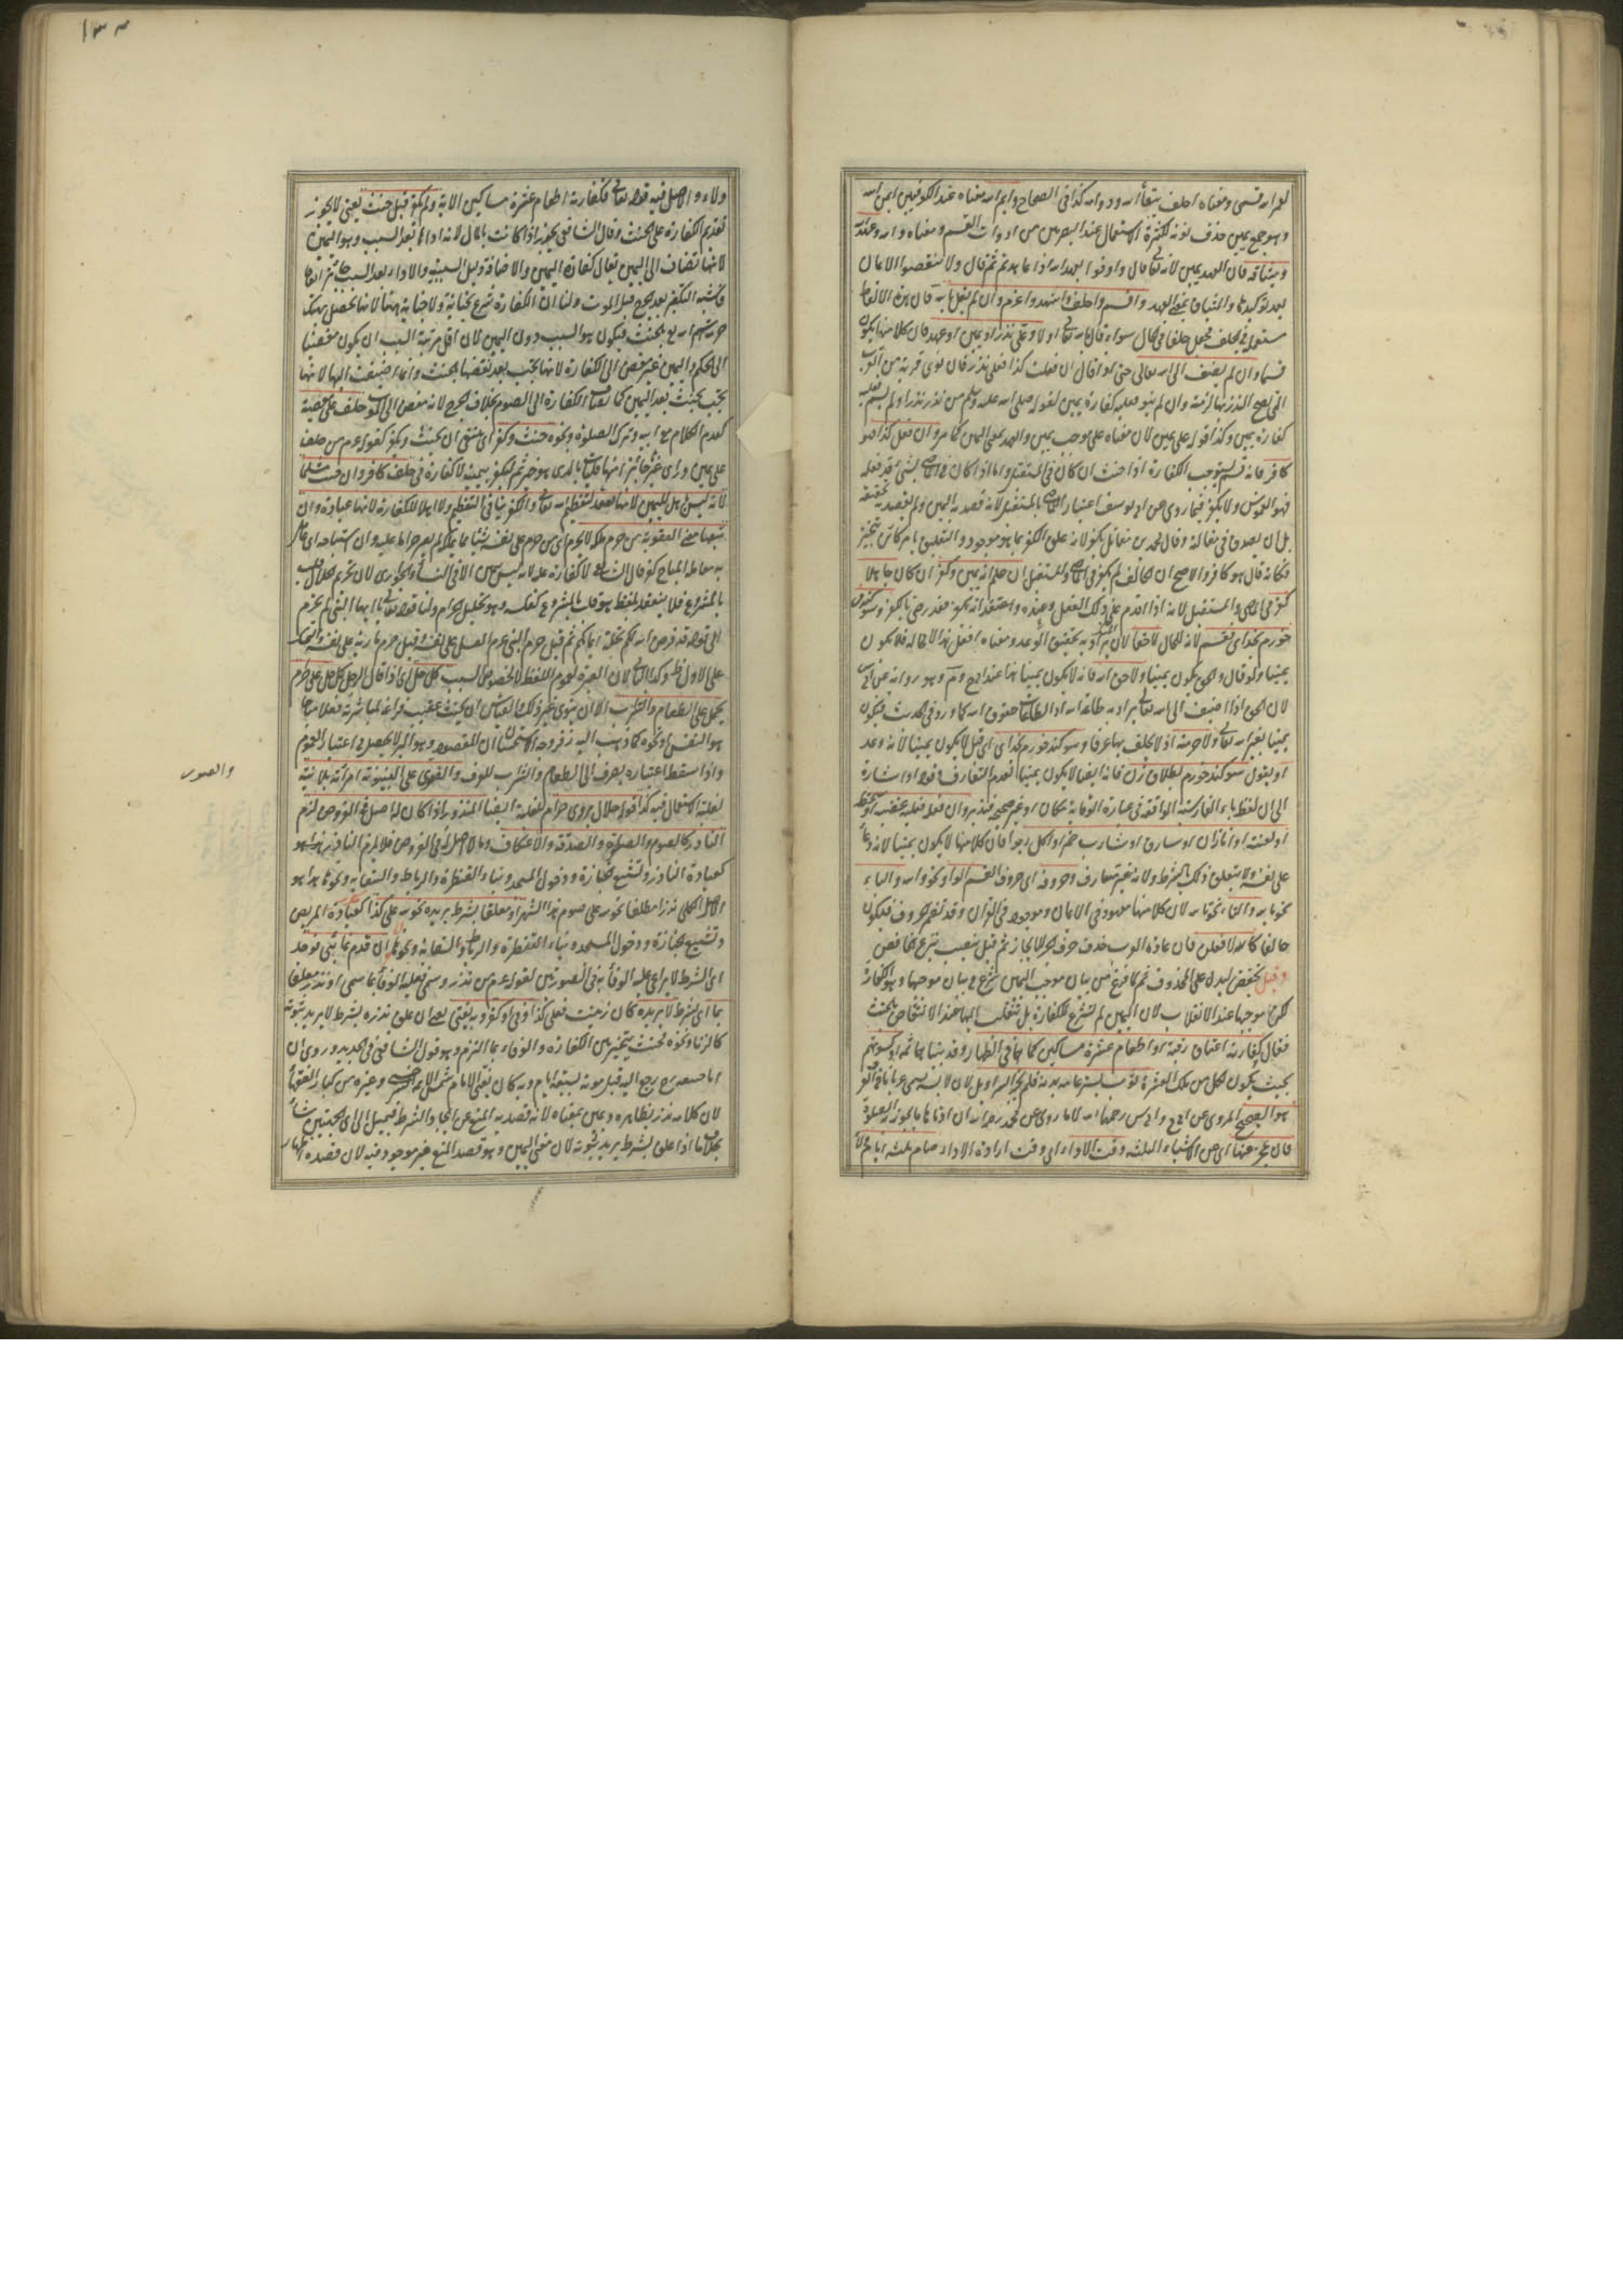 لعمر الله قسمي ومعناه احلف ببقاء الله ودوامه كذا في الصحاح وايم الله معناه عند الكوفيين ايمن الله
وهو جمع يمين حذف نونه لكثرة الاستعمال عند البصريين من ادوات القسم ومعناه والله وعهد الله
وميثاقه فان العهد يمين لانه تعالى قال واوفوا بعهد الله اذا عاهدتم ثم قال ولا تنقضوا الايمان
بعد توكيدها والميثاق بمعنى العهد واقسم واحلف واشهد واعزم وان لم يقل بالله فان هذه الالفاظ
مستعملة في الحلف فجعل حلفا في الحال سواء قال بالله تعالى اولا وعلي نذر او يمين او عهد فان كلا منها يكون
قسما وان لم يضف الى الله تعالى حتى لو قال ان فعلت كذا فعلي نذر فان نوى قربة من القرب
التي يصح النذر بها لزمته وان لم ينو فعليه كفارة يمين لقوله صلى الله عليه وسلم من نذر نذرا ولم يسم فعليه
كفارة يمين وكذا قوله علي يمين لان معناه علي موجب يمين والعهد بمعنى اليمين كما مر وان فعل كذا فهو
كافر فانه قسم يوجب الكفارة اذا حنث ان كان في المستقبل واما اذا كان في الماضي لشيء قد فعله
فهو الغموس ولا يكفر فيما روي عن ابي يوسف اعتبارا للماضي بالمستقبل لانه قصد به اليمين ولم يقصد به تحقيقه
بل ان يصدق في مقالته وقال محمد بن مقاتل يكفر لانه علق الكفر بما هو موجود والتعليق بامر كائن تنجيز
فكانه قال هو كافر والاصح ان الحالف لم يكفر في الماضي والمستقبل ان علم انه يمين وكفر ان كان جاهلا
كفر في الماضي والمستقبل لانه اذا اقدم على ذلك الفعل وعنده واعتقد انه يكفر فقد رضي بالكفر وسوگند
خورم بخداى قسم لانه للحال لا حقا لان يراد به تحقيق الوعد ومعناه افعل هذا لا محالة فلا يكون
يمينا ولو قال والحق يكون يمينا ولا حق الله فانه لا يكون يمينا عند ابي ح وم وهو رواية عن ابي س
لان الحق اذا اضيف الى الله تعالى يراد به طاعة الله اذ الطاعات حقوق الله كما ورد في الحديث فيكون
يمينا بغير الله تعالى ولا حرمته اذ لا يحلف بها عرفا وسوگند خورم بخداى اي قيل لا يكون يمينا لانه وعد
او يقول سوگند خورم بطلاق زن فانه ايضا لا يكون يمينا لعدم التعارف وقوله او اشارة
الى ان لفظ ياء الفارسية الواقعة في عبارة الوقاية مكان او غير صحيحة فتدبر وان فعله فعليه غضبه او سخطه
او لعنته او انا زان او سارق او شارب خمر او اكل ربوا فان كلا منها لا يكون يمينا لانه دعاء
على نفسه ولا يتعلق ذلك بالشرط ولانه غير متعارف وحروفه اي حروف القسم الواو نحو والله والباء
نحو بالله والتاء نحو تالله لان كلا منها معهود في الايمان ومذكور في القرآن وقد تضمر حروفه فيكون
حالفا كالله لافعلن فان عادة العرب حذف حرف الجر للايجاز ثم قيل ينصب بنزع الخافض
وقيل يخفض ليدل على المحذوف ثم لما فرغ من بيان موجب اليمين شرع في بيان موجبها وهو الكفارة
لكن موجبها عند الانقلاب لان اليمين لم تشرع للكفارة بل تنقلب اليها عند الانتقاض بالحنث
فقال كفارته اعتاق رقبة او اطعام عشرة مساكين كما هما في الظهار وقد بينا هما ثمه او كسوتهم
بحيث يكون لكل من تلك العشرة ثوب يستر عامة بدنه فلم يجز السراويل لان لابسه يسمى عريانا في العرف
هو الصحيح المروي عن ابي ح وابي س رحمهما الله لا ما روي عن محمد رحمه الله ان ادناها ما يجوز به الصلوة
فان عجز عنها اي عن الاشياء الثلثة وقت الاداء اي وقت ارادة الاداء صام ثلثة ايام
ولاء والاصل فيه قوله تعالى فكفارته اطعام عشرة مساكين الاية ولم يكفر قبل حنث يعني لا يجوز
تقديم الكفارة على الحنث وقال الشافعي يجوز اذا كانت بالمال لانه اداها بعد السبب وهو اليمين
لانها تضاف الى اليمين يقال كفارة اليمين والاضافة دليل السببية والاداء بعد السبب جائز اتفاقا
فاشبه التكفير بعد الجرح قبل الموت ولنا ان الكفارة شرع لجناية ولا جناية ههنا لانها تحصل بهتك
حرمة اسم الله تع بالحنث فيكون هو السبب دون اليمين لان اقل مرتبة السبب ان يكون مفضيا
الى الحكم واليمين غير مفض الى الكفارة لانها تجب بعد نقضها بالحنث وانما اضيفت اليها لانها
تجب بحنث بعد اليمين كما تضاف الكفارة الى الصوم بخلاف الجرح لانه مفض الى الموت حلف على معصية
كعدم الكلام مع ابيه وترك الصلوة ونحوه حنث وكفر اي ينبغي ان يحنث ويكفر لقوله عم من حلف
على يمين وراى غيرها خيرا منها فليات بالذي هو خير ثم ليكفر يمينه لا كفارة في حلف كافر وان حنث مسلما
لانه ليس باهل لليمين لانها تعقد لتعظيم الله تعالى والكفر ينافي التعظيم ولا اهلا للكفارة لانها عبادة وان
تبعها معنى العقوبة من حرم ملكه لا يحرم اي من حرم على نفسه شيئا مما يملكه لم يصر حراما عليه وان استباحه اي عامل
به معاملة المباح كفر قال الشافعي لا كفارة عليه لانه ليس بيمين الا في النساء والجواري لان تحريم الحلال قلب
بالمشروع فلا ينعقد بلفظ هو قلب المشروع كعكسه وهو تحليل الحرام ولنا قوله تعالى يا ايها النبي لم تحرم
الى قوله قد فرض الله لكم تحلة ايمانكم ثم قيل حرم النبي عم العسل على نفسه وقيل حرم مارية على نفسه والتمسك
على الاول ظاهر وكذا الثاني لان العبرة لعموم اللفظ لا لخصوص السبب كل حل اي اذا قال الرجل كل حل علي حرام
يحمل على الطعام والشراب الا ان ينوي غير ذلك والقياس ان يحنث عقيب فراغه لمباشرته فعلا مباحا
هو التنفس او نحوه كما ذهب اليه زفر وجه الاستحسان ان المقصود وهو البر لا يحصل في اعتبار العموم
واذا سقط اعتباره يصرف الى الطعام والشراب للعرف والفتوى على البينونة امرأته بلا نية
لغلبة الاستعمال فيه كذا قوله حلال بروى حرام للغلبة ايضا المنذور اذا كان له اصل في الفروض لزم
الناذر كالصوم والصلوة والصدقة والاعتكاف وما لا اصل له في الفروض فلا يلزم الناذر
كعيادة الناذر وتشييع الجنازة ودخول المسجد وبناء القنطرة والرباط والسقاية ونحوها هذا هو
الاصل الكلي نذرا مطلقا نحو لله علي صوم هذا الشهر او معلقا بشرط يريده نحو لله علي كذا كعيادة المريض
وتشييع جنازة ودخول المسجد وبناء القنطرة والرباط والسقاية ونحوها ان قدم غائبي فوجد
اي الشرط لا يراعى عليه الوفاء به في الصورتين لقوله عم من نذر وسمى فعليه الوفاء بما سمى او نذر معلقا
بما اي بشرط لا يريده كان زنيت فعلي كذا وفى او كفر وبه يفتى يعني ان علق نذره بشرط لا يريد ثبوته
كالزنا ونحوه فحنث يتخير بين الكفارة والوفاء بما التزم وهو قول الشافعي في الجديد وروي ان
ابا حنيفة رح رجع اليه قبل موته بسبعة ايام وبه كان يفتي الامام شمس الائمة السرخسي وغيره من كبار الفقهاء
لان كلامه نذر بظاهره ويمين بمعناه لانه قصد به المنع عن ايجاد الشرط فيميل الى اي الجهتين شاء
بخلاف ما اذا علق بشرط يريد ثبوته لان معنى اليمين وهو قصد المنع غير موجود فيه لان قصده اظهار
والصور